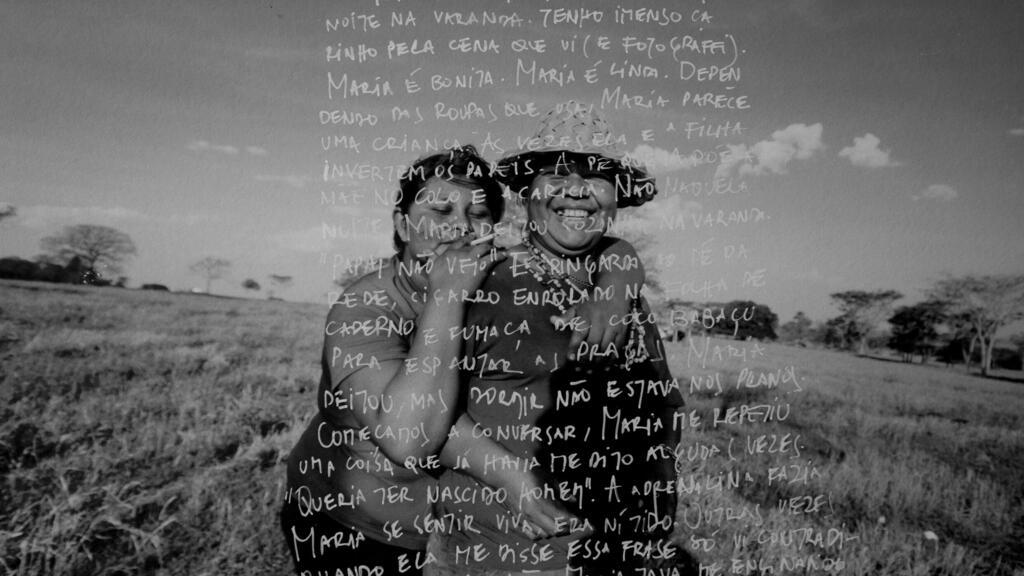 NOITE NA VARANDA. TENHO IMENSO CA
RINHO PELA CENA QUE VI (E FOTOGRAFEI).
MARIA É BONITA. MARIA É LINDA. DEPEN
DENDO DAS ROUPAS QUE USA, MARIA PARECE
UMA CRIANÇA. ÀS VEZES ELA E A FILHA
INVERTEM OS PAPÉIS. A PEQUENA BOTA A
MÃE NO COLO E ACARICIA. NÃO NAQUELA
NOITE. MARIA DEITOU SOZINHA NA VARANDA.
"PAPAI NÃO VEIO". ESPINGARDA AO PÉ DA
REDE, CIGARRO ENROLADO NA FOLHA DE
CADERNO E FUMAÇA DE COCO BABAÇU
PARA ESPANTAR AS PRAGAS. MARIA
DEITOU, MAS DORMIR NÃO ESTAVA NOS PLANOS
COMEÇAMOS A CONVERSAR, MARIA ME REPETIU
UMA COISA QUE JÁ HAVIA ME DITO ALGUMAS VEZES.
"QUERIA TER NASCIDO HOMEM". A ADRENALINA FAZIA
MARIA SE SENTIR VIVA, ERA NÍTIDO. OUTRAS VEZES
QUANDO ELA ME DISSE ESSA FRASE SÓ VI CONTRADI-
ME ENSINANDO